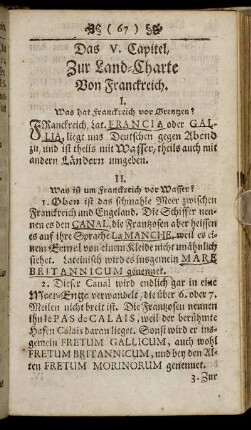 ( 67 )
Das V. Capitel,
Zur Land-Charte
Von Franckreich.
I.
Was hat Franckreich vor Grentzen?
FRanckreich, Lat. FRANCIA oder GAL-
LIA, liegt uns Deutschen gegen Abend
zu, und ist theils mit Wasser, theils auch mit
andern Ländern umgeben.
II.
Was ist um Franckreich vor Wasser?
1. Oben ist das schmahle Meer zwischen
Franckreich und Engeland. Die Schiffer nen-
nen es den CANAL, die Frantzosen aber heissen
es auf ihre Sprache La MANCHE, weil es ei-
nem Ermel von einem Kleide nicht unähnlich
siehet. Lateinisch wird es insgemein MARE
BRITANNICUM genennet.
2. Dieser Canal wird endlich gar in eine
Meer-Enge verwandelt, die über 6. oder 7.
Meilen nicht breit ist. Die Frantzosen nennen
ihn le PAS de CALAIS, weil der berühmte
Hafen Calais daran lieget. Sonst wird er ins-
gemein FRETUM GALLICUM, auch wohl
FRETUM BRITANNICUM, und bey den Al-
ten FRETUM MORINORUM genennet.
3. Zur